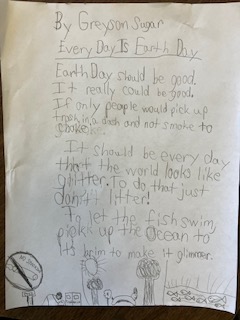 By Greyson Sugar
Every Day Is Earth Day
Earth Day should be good.
It really could be good.
If only people would pick up
trash, in a dash and not smoke to
It should be every day
that the world looks like
glitter. To do that just
don't litter!
To let the fish swim,
pick up the ocean to
It's brim to make it glimmer.